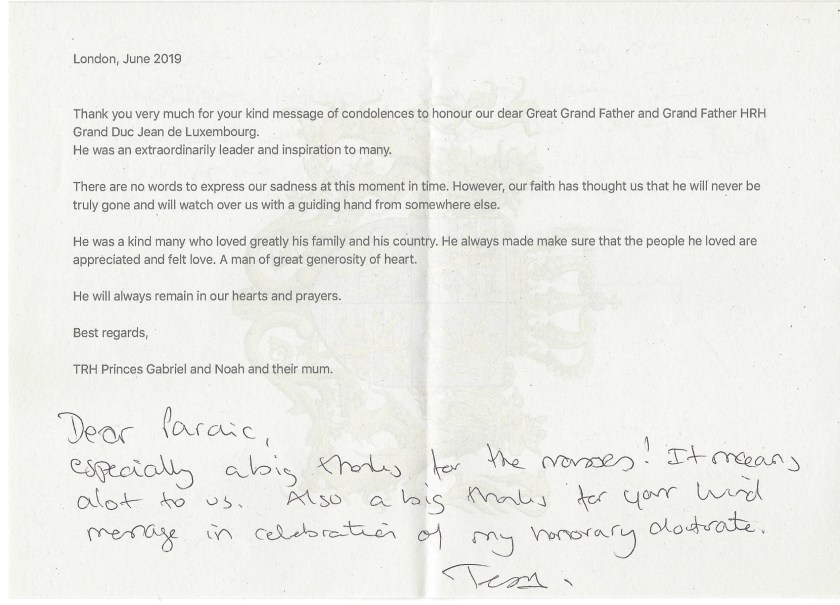 London, June 2019
Thank you very much for your kind message of condolences to honour our dear Great Grand Father and Grand Father HRH
Grand Duc Jean de Luxembourg.
He was an extraordinarily leader and inspiration to many.
There are no words to express our sadness at this moment in time. However, our faith has thought us that he will never be
truly gone and will watch over us with a guiding hand from somewhere else.
He was a kind many who loved greatly his family and his country. He always made make sure that the people he loved are
appreciated and felt love. A man of great generosity of heart.
He will always remain in our hearts and prayers.
Best regards,
TRH Princes Gabriel and Noah and their mum.
Dear Paraic,
especially a big thanks for the masses! It means
alot to us. Also a big thanks for your kind
message in celebration of my honorary doctrate.
Tessy.